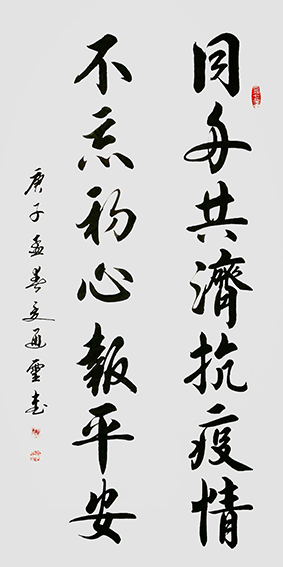 同舟共濟抗疫情
不忘初心報平安
庚子孟春吏通靈書